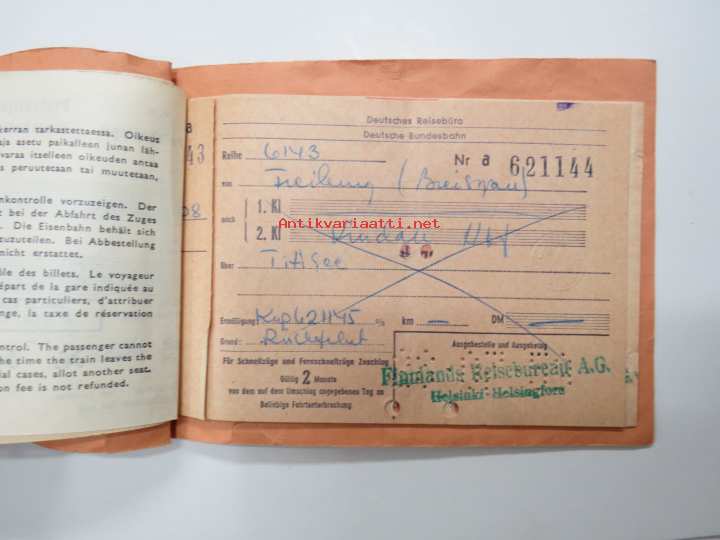 kerran tarkastettaessa. Oikeus
aja asetu paikalleen junan läh-
varaa itselleen oikeuden antaa
peruutetaan tai muutetaan,
nkontrolle vorzuzeigen. Der
t bei der Abfahrt des Zuges
. Die Eisenbahn behält sich
zuzuteilen. Bei Abbestellung
nicht erstattet.
ôle des billets. Le voyageur
départ de la gare indiquée au
cas particuliers, d'attribuer
nge, la taxe de réservation
ntrol. The passenger cannot
the time the train leaves the
ial cases, allot another seat.
on fee is not refunded.
a
43
08
Deutsches Reisebüro
Deutsche Bundesbahn
Reihe 6143 Nr a 621144
von Freiburg (Breisgau)
nach 1. Kl
2. Kl Lindau Hbf
Antikvariaatti.net
über Titisee
Ermäßigung 621145 % km — DM —
Grund: Rückfahrt
Ausgabestelle und Ausgabetag
Für Schnellzüge und Fernschnellzüge Zuschlag
Gültig 2 Monate
von dem auf dem Umschlag angegebenen Tag an
Beliebige Fahrtunterbrechung
Finnlands Reisebureau A.G.
Helsinki-Helsingfors